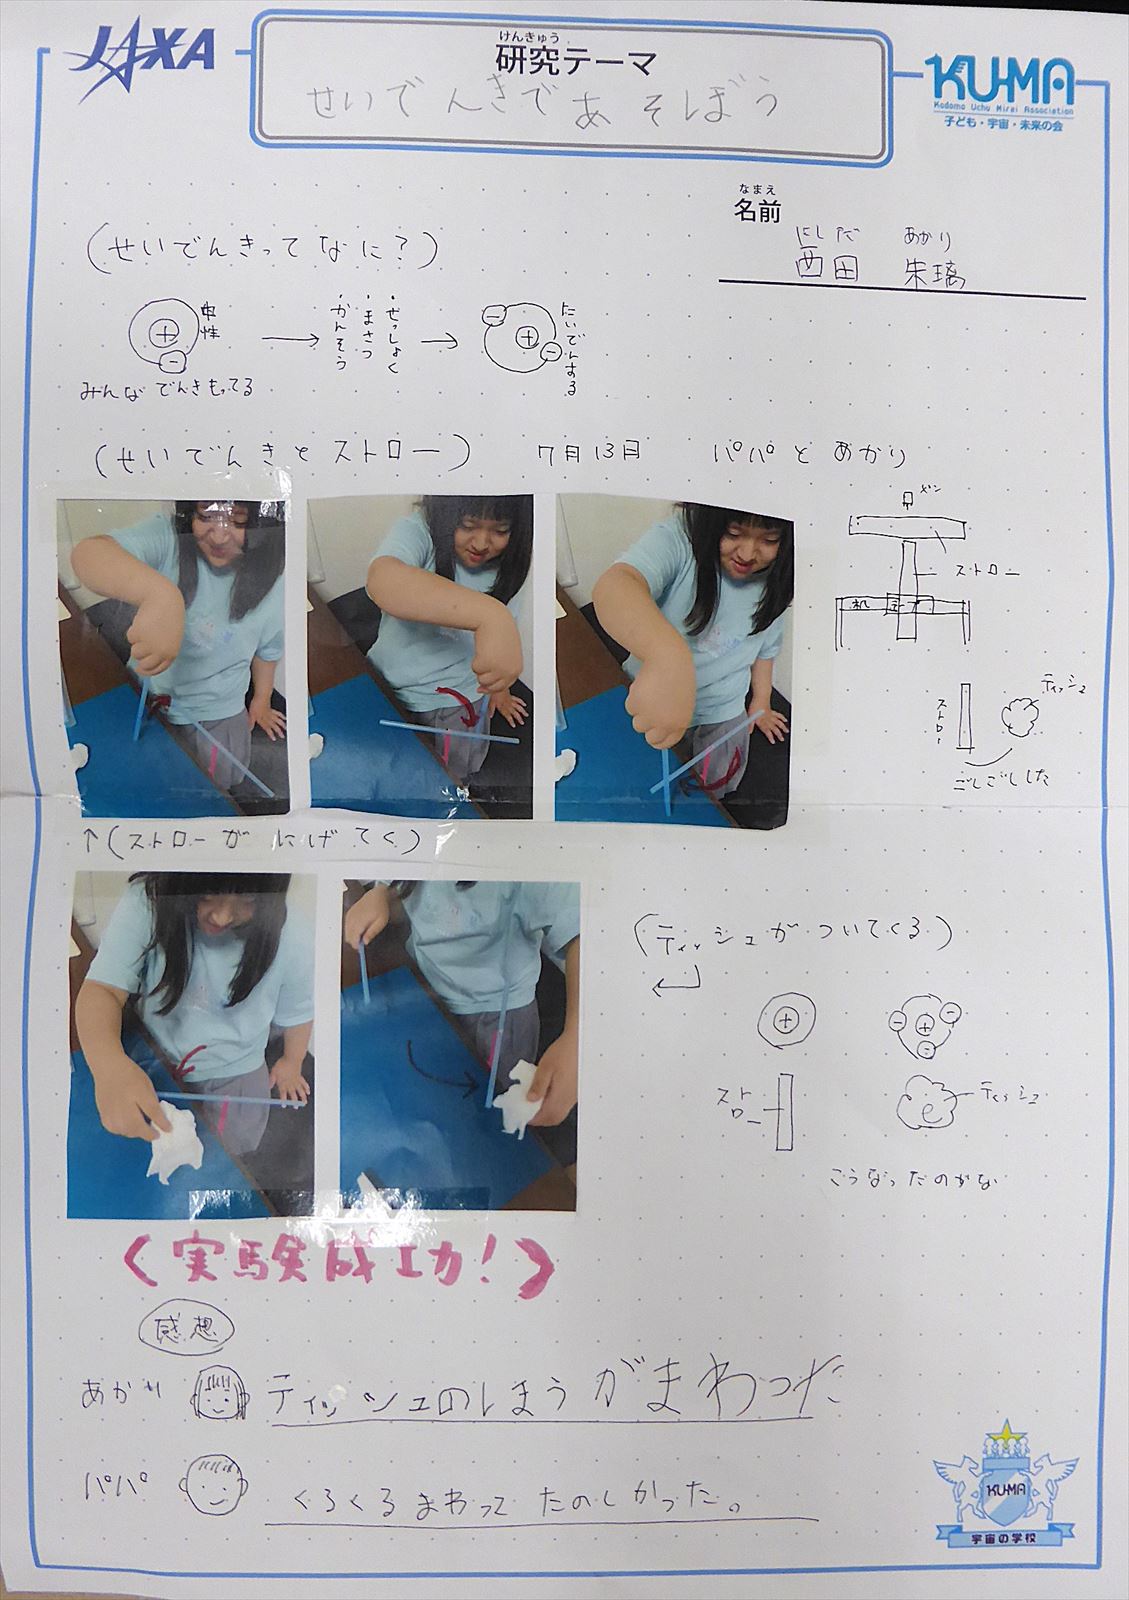 JAXA
けんきゅう
研究テーマ
せいでんきであそぼう
KU-MA
Kodomo Uchu Mirai Association
子ども・宇宙・未来の会
なまえ
名前
にしだ あかり
西田 朱璃
(せいでんきってなに?)
+
-
中性
みんなでんきもってる
・せっしょく
・まさつ
・かんそう
-
+
-
たいでんする
(せいでんきとストロー) 7月13日 パパとあかり
ストロー
机
ストロー
ティッシュ
ごしごしした
↑(ストローがにげてく)
(ティッシュがついてくる)
+
- + -
-
ストロー
ティッシュ
こうなったのかな
(実験成功!)
感想
あかり ティッシュのしほうがまわった
パパ くるくるまわってたのしかった。
KU-MA
宇宙の学校